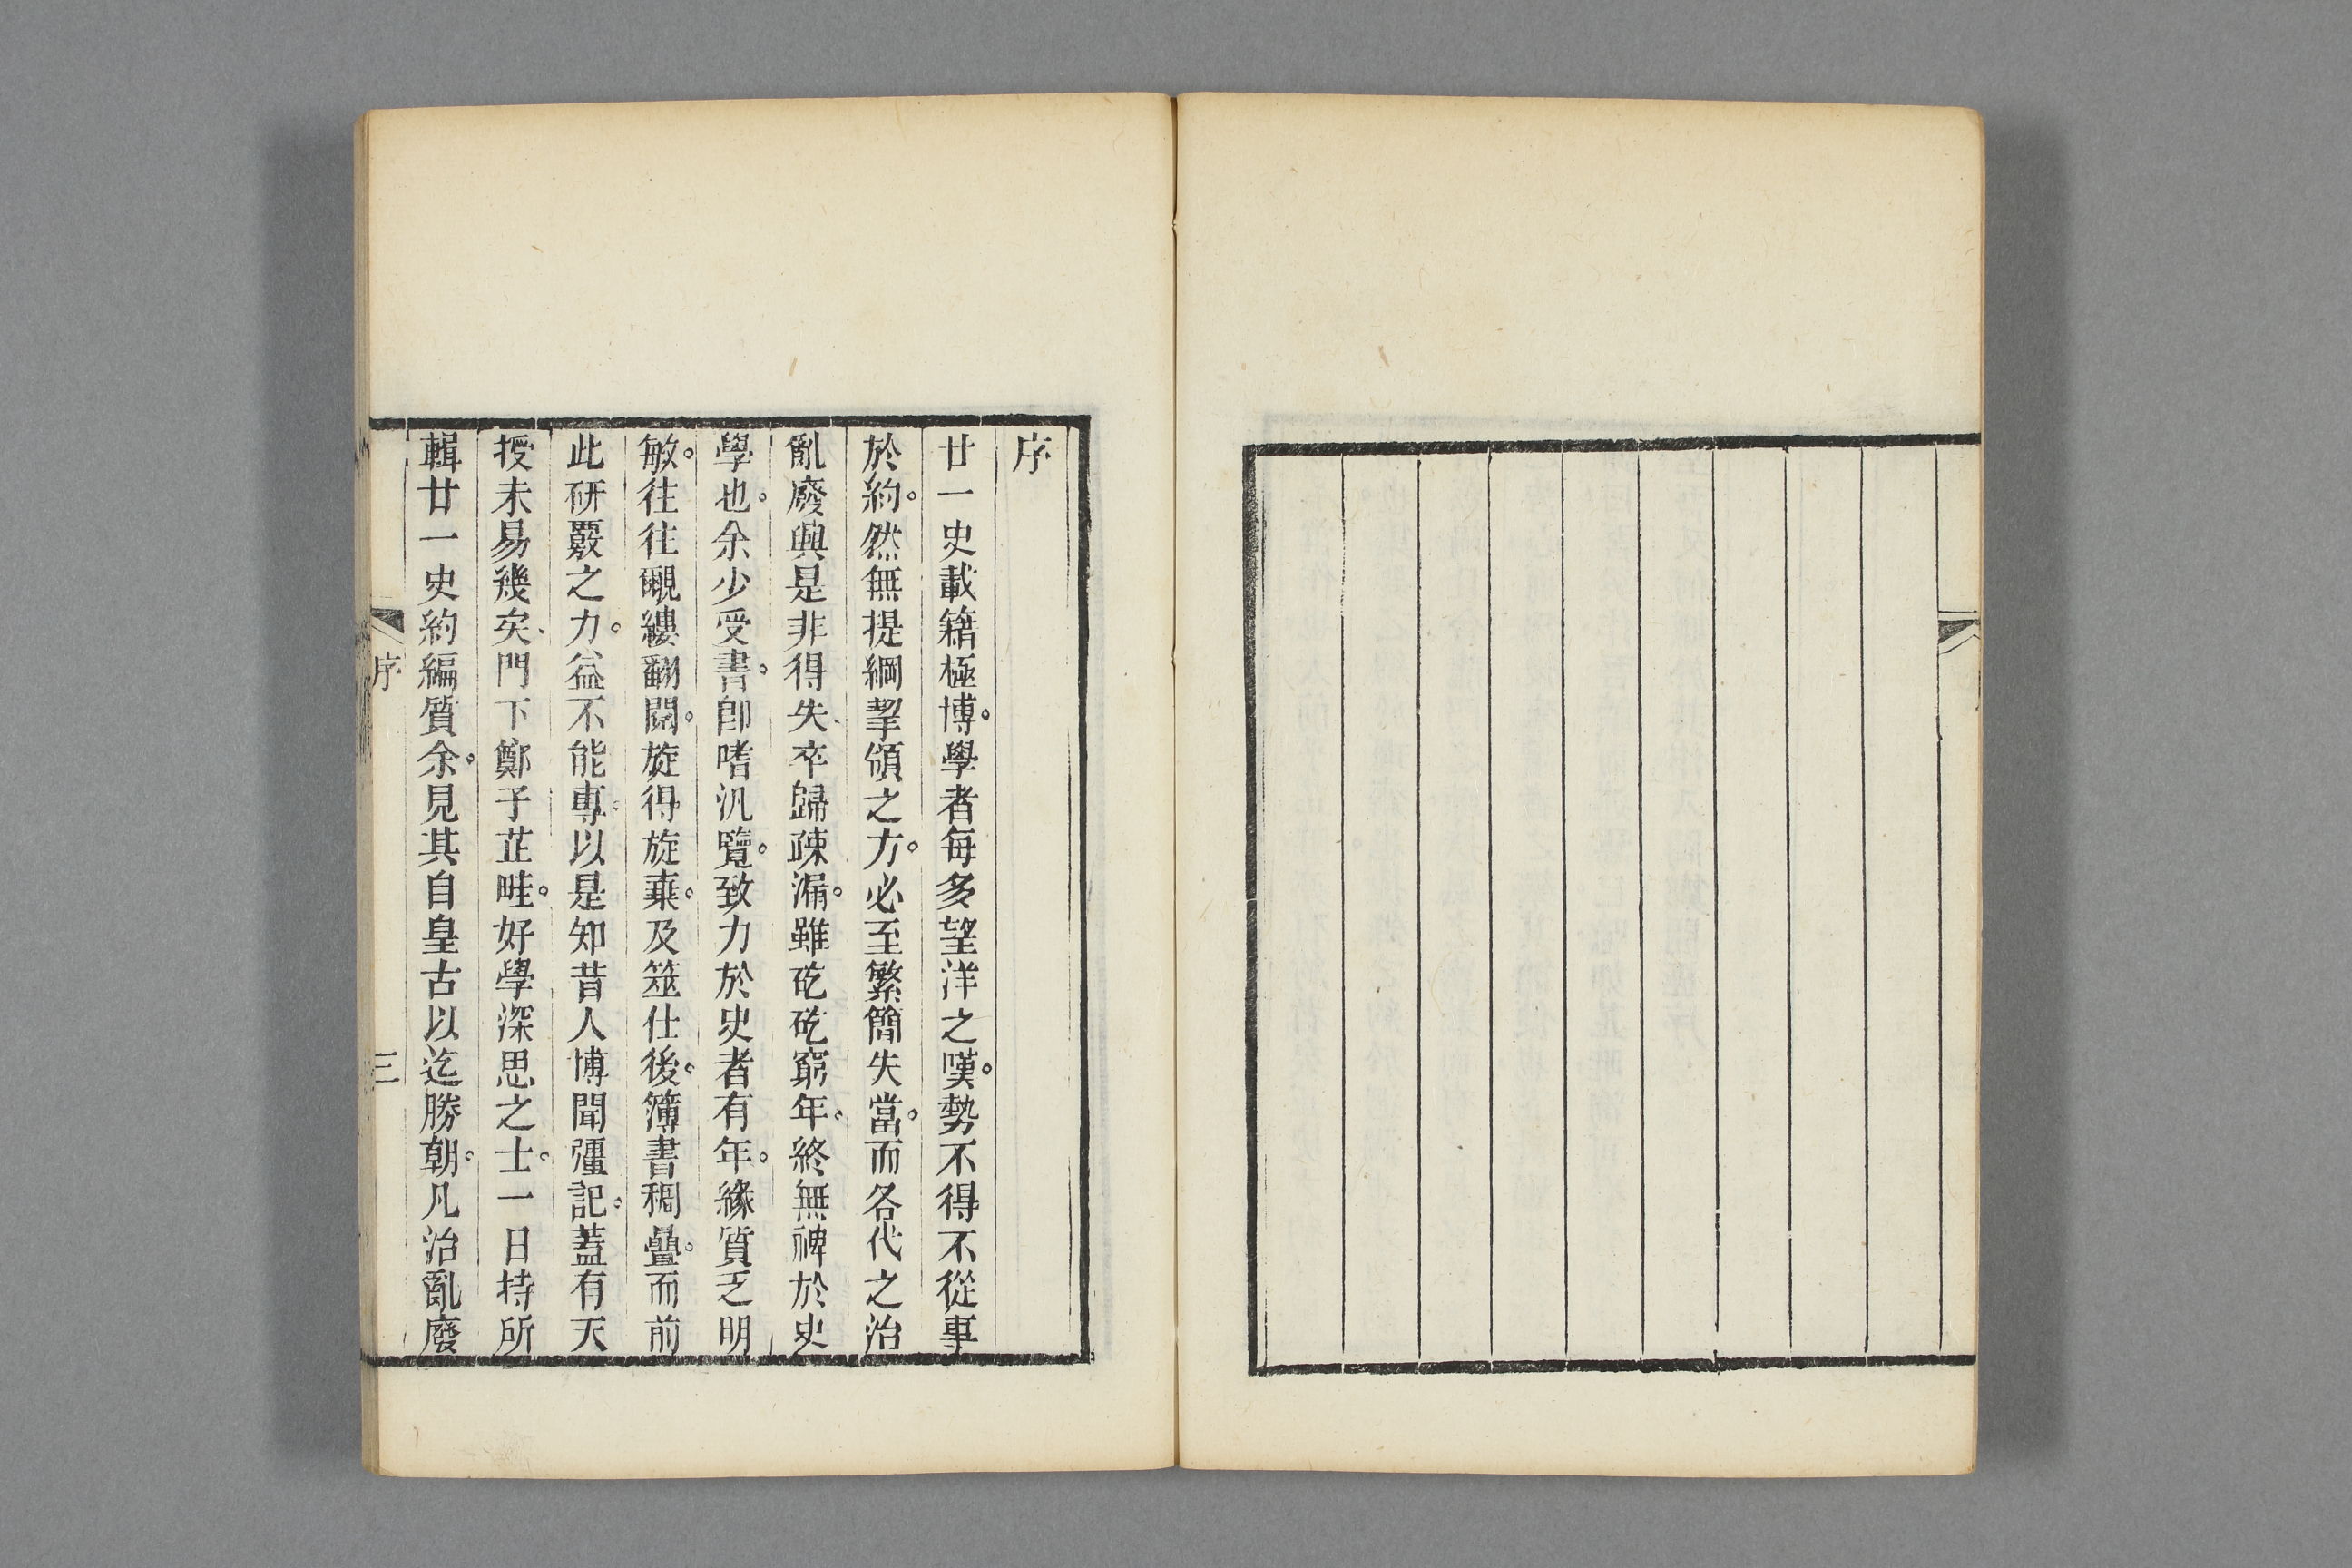 序
廿一史載籍極博。學者每多望洋之嘆。勢不得不從事
於約。然無提綱挈領之方。必至繁簡失當。而各代之治
亂廢興是非得失、卒歸疎漏。雖矻矻窮年。終無裨於史
學也。余少受書。卽嗜汎覽。致力於史者有年。緣質乏明
敏。往往覼縷翻閱。旋得旋棄。及筮仕後。簿書稠疊。而前
此研覈之力。益不能專。以是知昔人博聞彊記。蓋有天
授未易幾矣、門下鄭子芷畦。好學深思之士。一日持所
輯廿一史約編質余。見其自皇古以迄勝朝。凡治亂廢
序
三